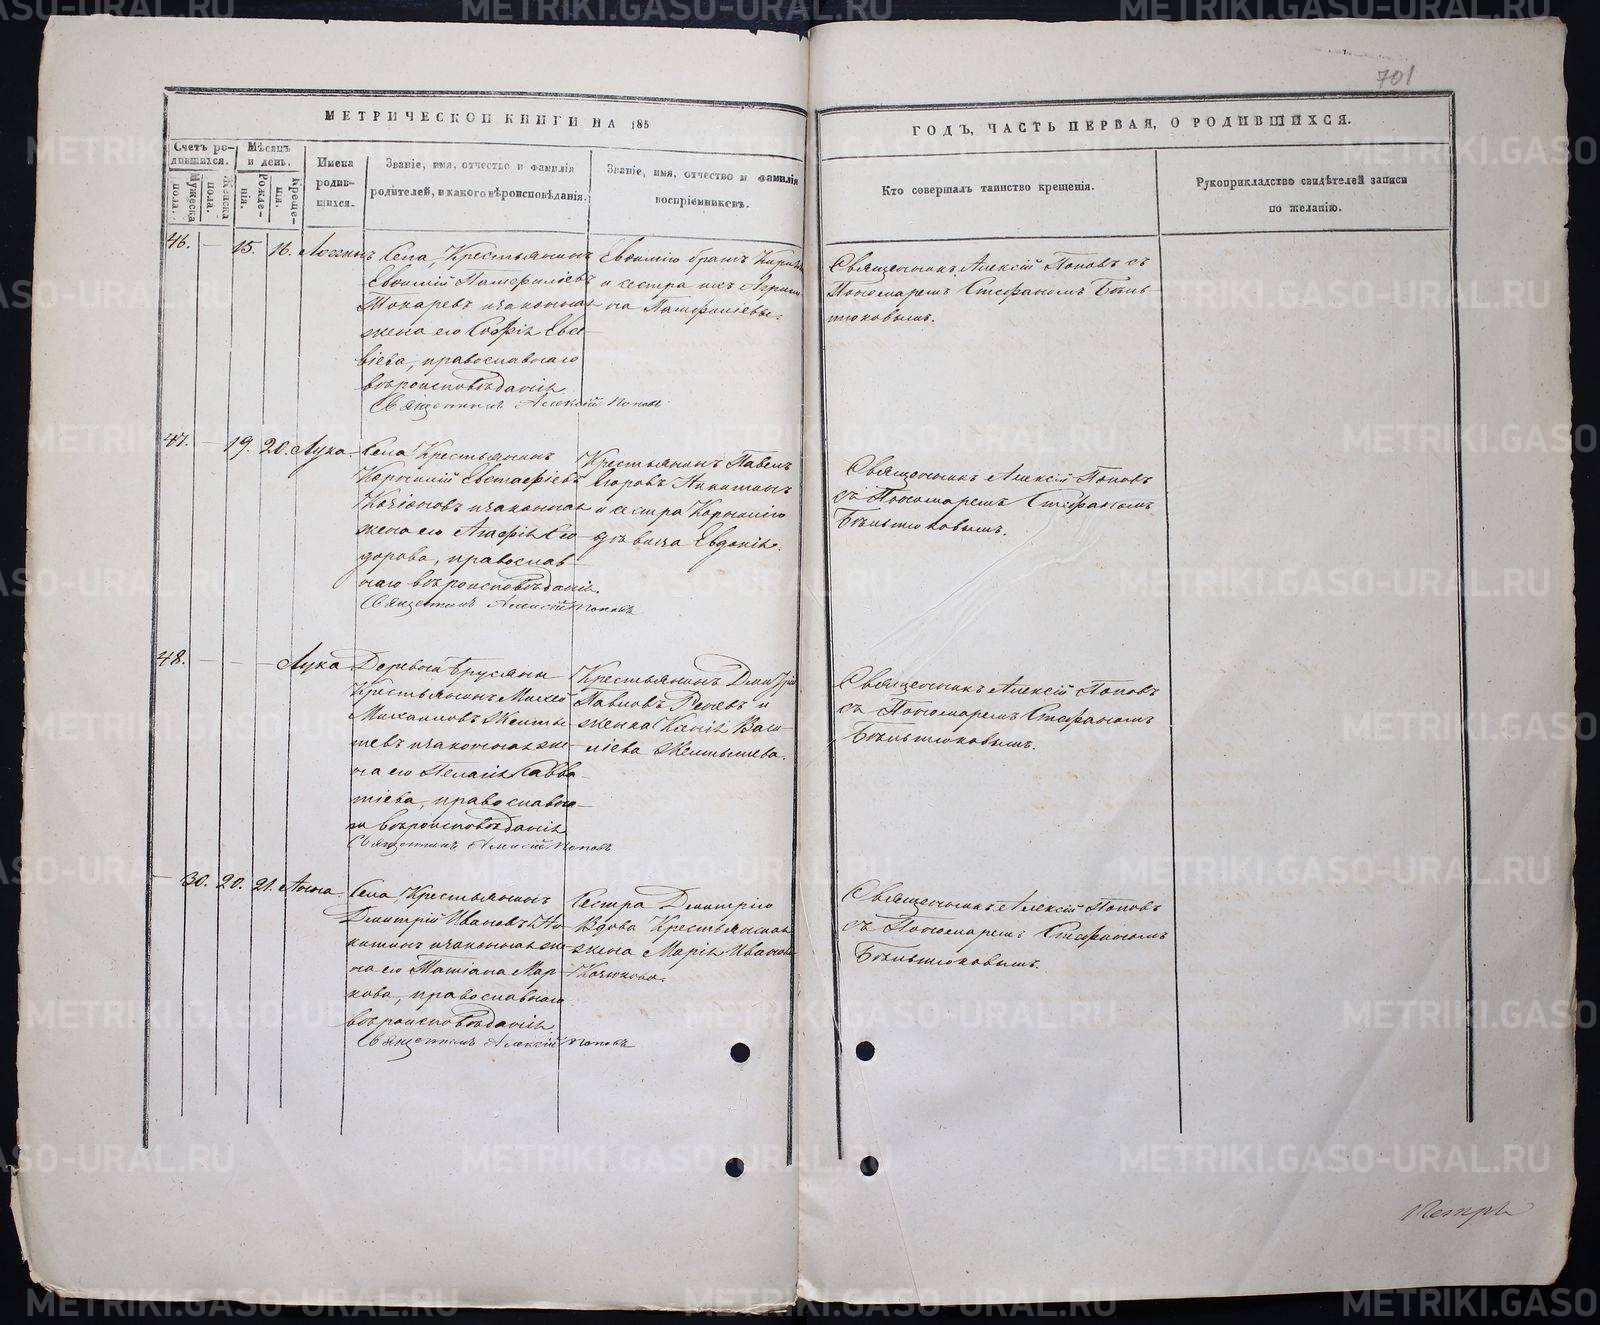 701
МЕТРИЧЕСКОЙ КНИГИ НА 185
ГОДЪ, ЧАСТЬ ПЕРВАЯ, О РОДИВШИХСЯ.
Счетъ ро-
дившихся.
Мужеска
пола.
Женска
пола.
Мѣсяцъ
и день.
Рожде-
нія.
Креще-
нія.
Имена
родив-
шихся.
Званіе, имя, отчество и фамилія
родителей, и какого вѣроисповѣданія.
Званіе, имя, отчество и фамилія
воспріемниковъ.
Кто совершалъ таинство крещенія.
Рукоприкладство свидѣтелей записи
по желанію.
46. — 15. 16. Логгинъ
Села, Крестьянинъ
Евѳимій Памфиліевъ
Токаревъ и законная
жена его Софія Евсе-
віева, православнаго
вѣроисповѣданія
Священникъ Алексій Поповъ
Евѳимію братъ
и сестра ихъ
на Памфиліевы.
Священникъ Алексій Поповъ съ
Пономаремъ Стефаномъ Бѣль-
тюковымъ.
47. — 19. 20. Лука.
Села Крестьянинъ
Корнилій Евстафіевъ
и законная
жена его Агафія Ѳео-
дорова, православ-
наго вѣроисповѣданія.
Священникъ Алексій Поповъ
Крестьянинъ Павелъ
Егоровъ Никитинъ
и сестра Корнилію
дѣвица Евдокія.
Священникъ Алексій Поповъ
съ Пономаремъ Стефаномъ
Бѣльтюковымъ.
48. — — Лука
Деревни Брусяны
Крестьянинъ Михей
Михаиловъ Желты-
шевъ и законная же-
на его Пелагія Савва-
тіева, православна-
го вѣроисповѣданія
Священникъ Алексій Поповъ
Крестьянинъ Димитрій
Павловъ и
женка Ксенія Васи-
ліева Желтышева.
Священникъ Алексій Поповъ
съ Пономаремъ Стефаномъ
Бѣльтюковымъ.
— 30. 20. 21. Анна.
Села, Крестьянинъ
Дмитрій Ивановъ Ни-
китинъ и законная же-
на его Татіана Мар-
кова, православнаго
вѣроисповѣданія
Священникъ Алексій Поповъ
Сестра Димитрію
Вдова Крестьянская
жена Марія Иванова
Священникъ Алексій Поповъ
съ Пономаремъ Стефаномъ
Бѣльтюковымъ.
METRIKI.GASO-URAL.RU